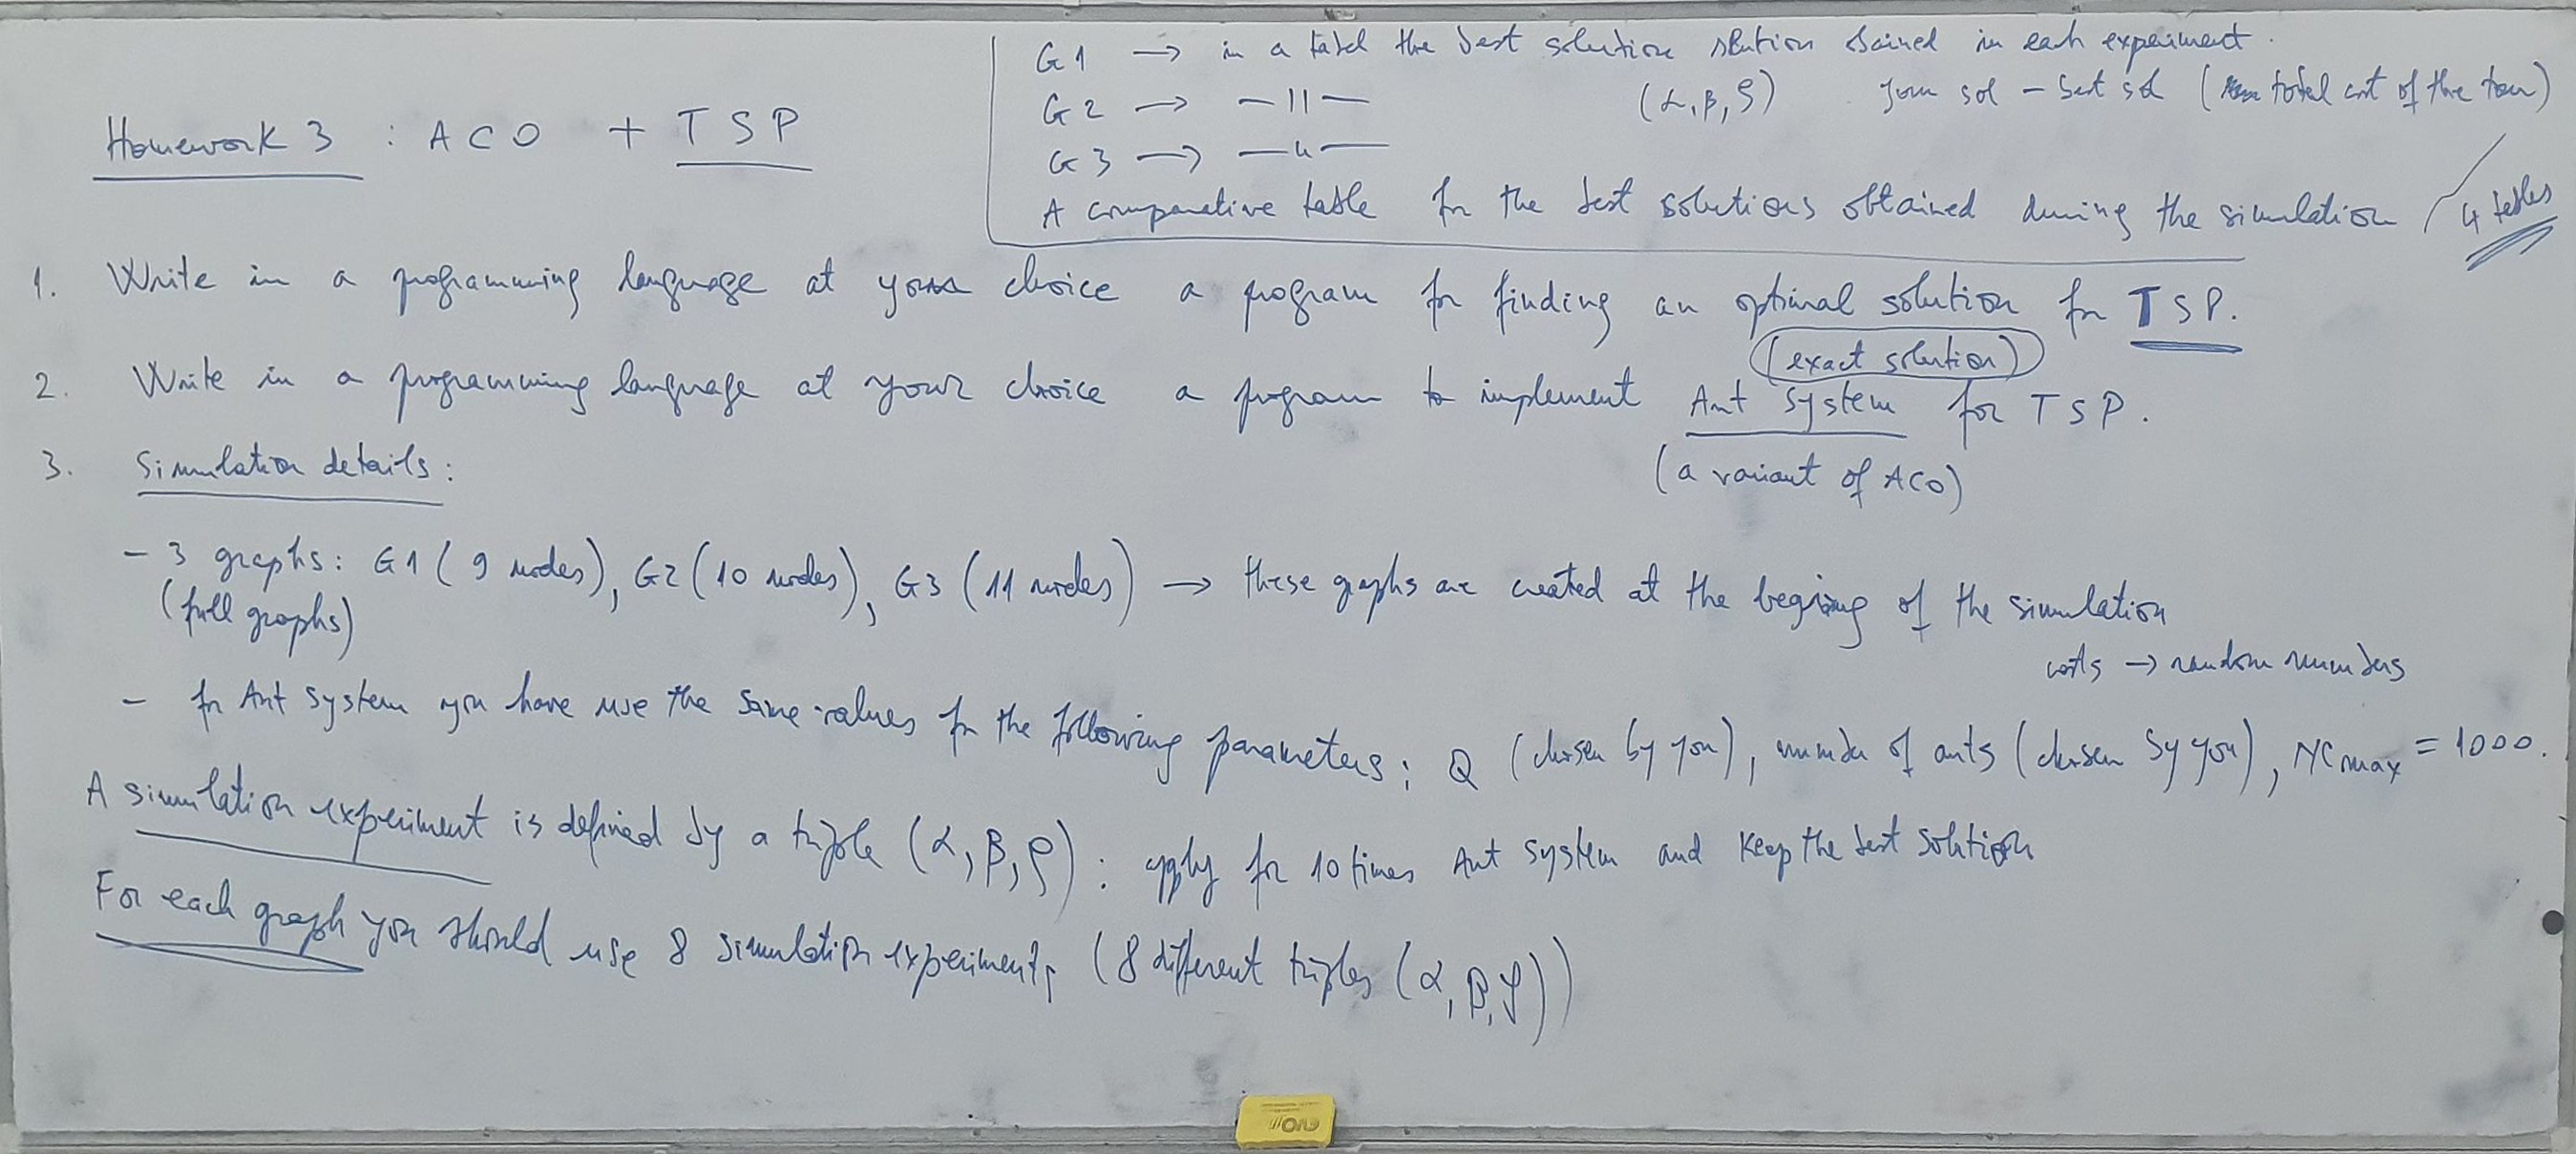 G1 → in a tabel the best solution slution obained in each experiment.
G2 → —||— (α, β, ρ) your sol – best sol (total cost of the tour)
G3 → —"—
A comparative table for the best solutions obtained during the simulation
4 tables
Homework 3 : ACO + TSP
1. Write in a programming language at your choice a program for finding an optimal solution for TSP.
(exact solution)
2. Write in a programming language at your choice a program to implement Ant System for TSP.
(a variant of ACO)
3. Simulation details:
– 3 graphs: G1 (9 nodes), G2 (10 nodes), G3 (11 nodes) → these graphs are created at the begining of the simulation
(full graphs)
costs → random numbers
– for Ant System you have use the same values for the following parameters: Q (chosen by you), number of ants (chosen by you), NCmax = 1000.
A simulation experiment is defined by a triple (α, β, ρ): apply for 10 times Ant System and keep the best solution
For each graph you should use 8 simulation experiments (8 different triples (α, β, ρ))
EVO